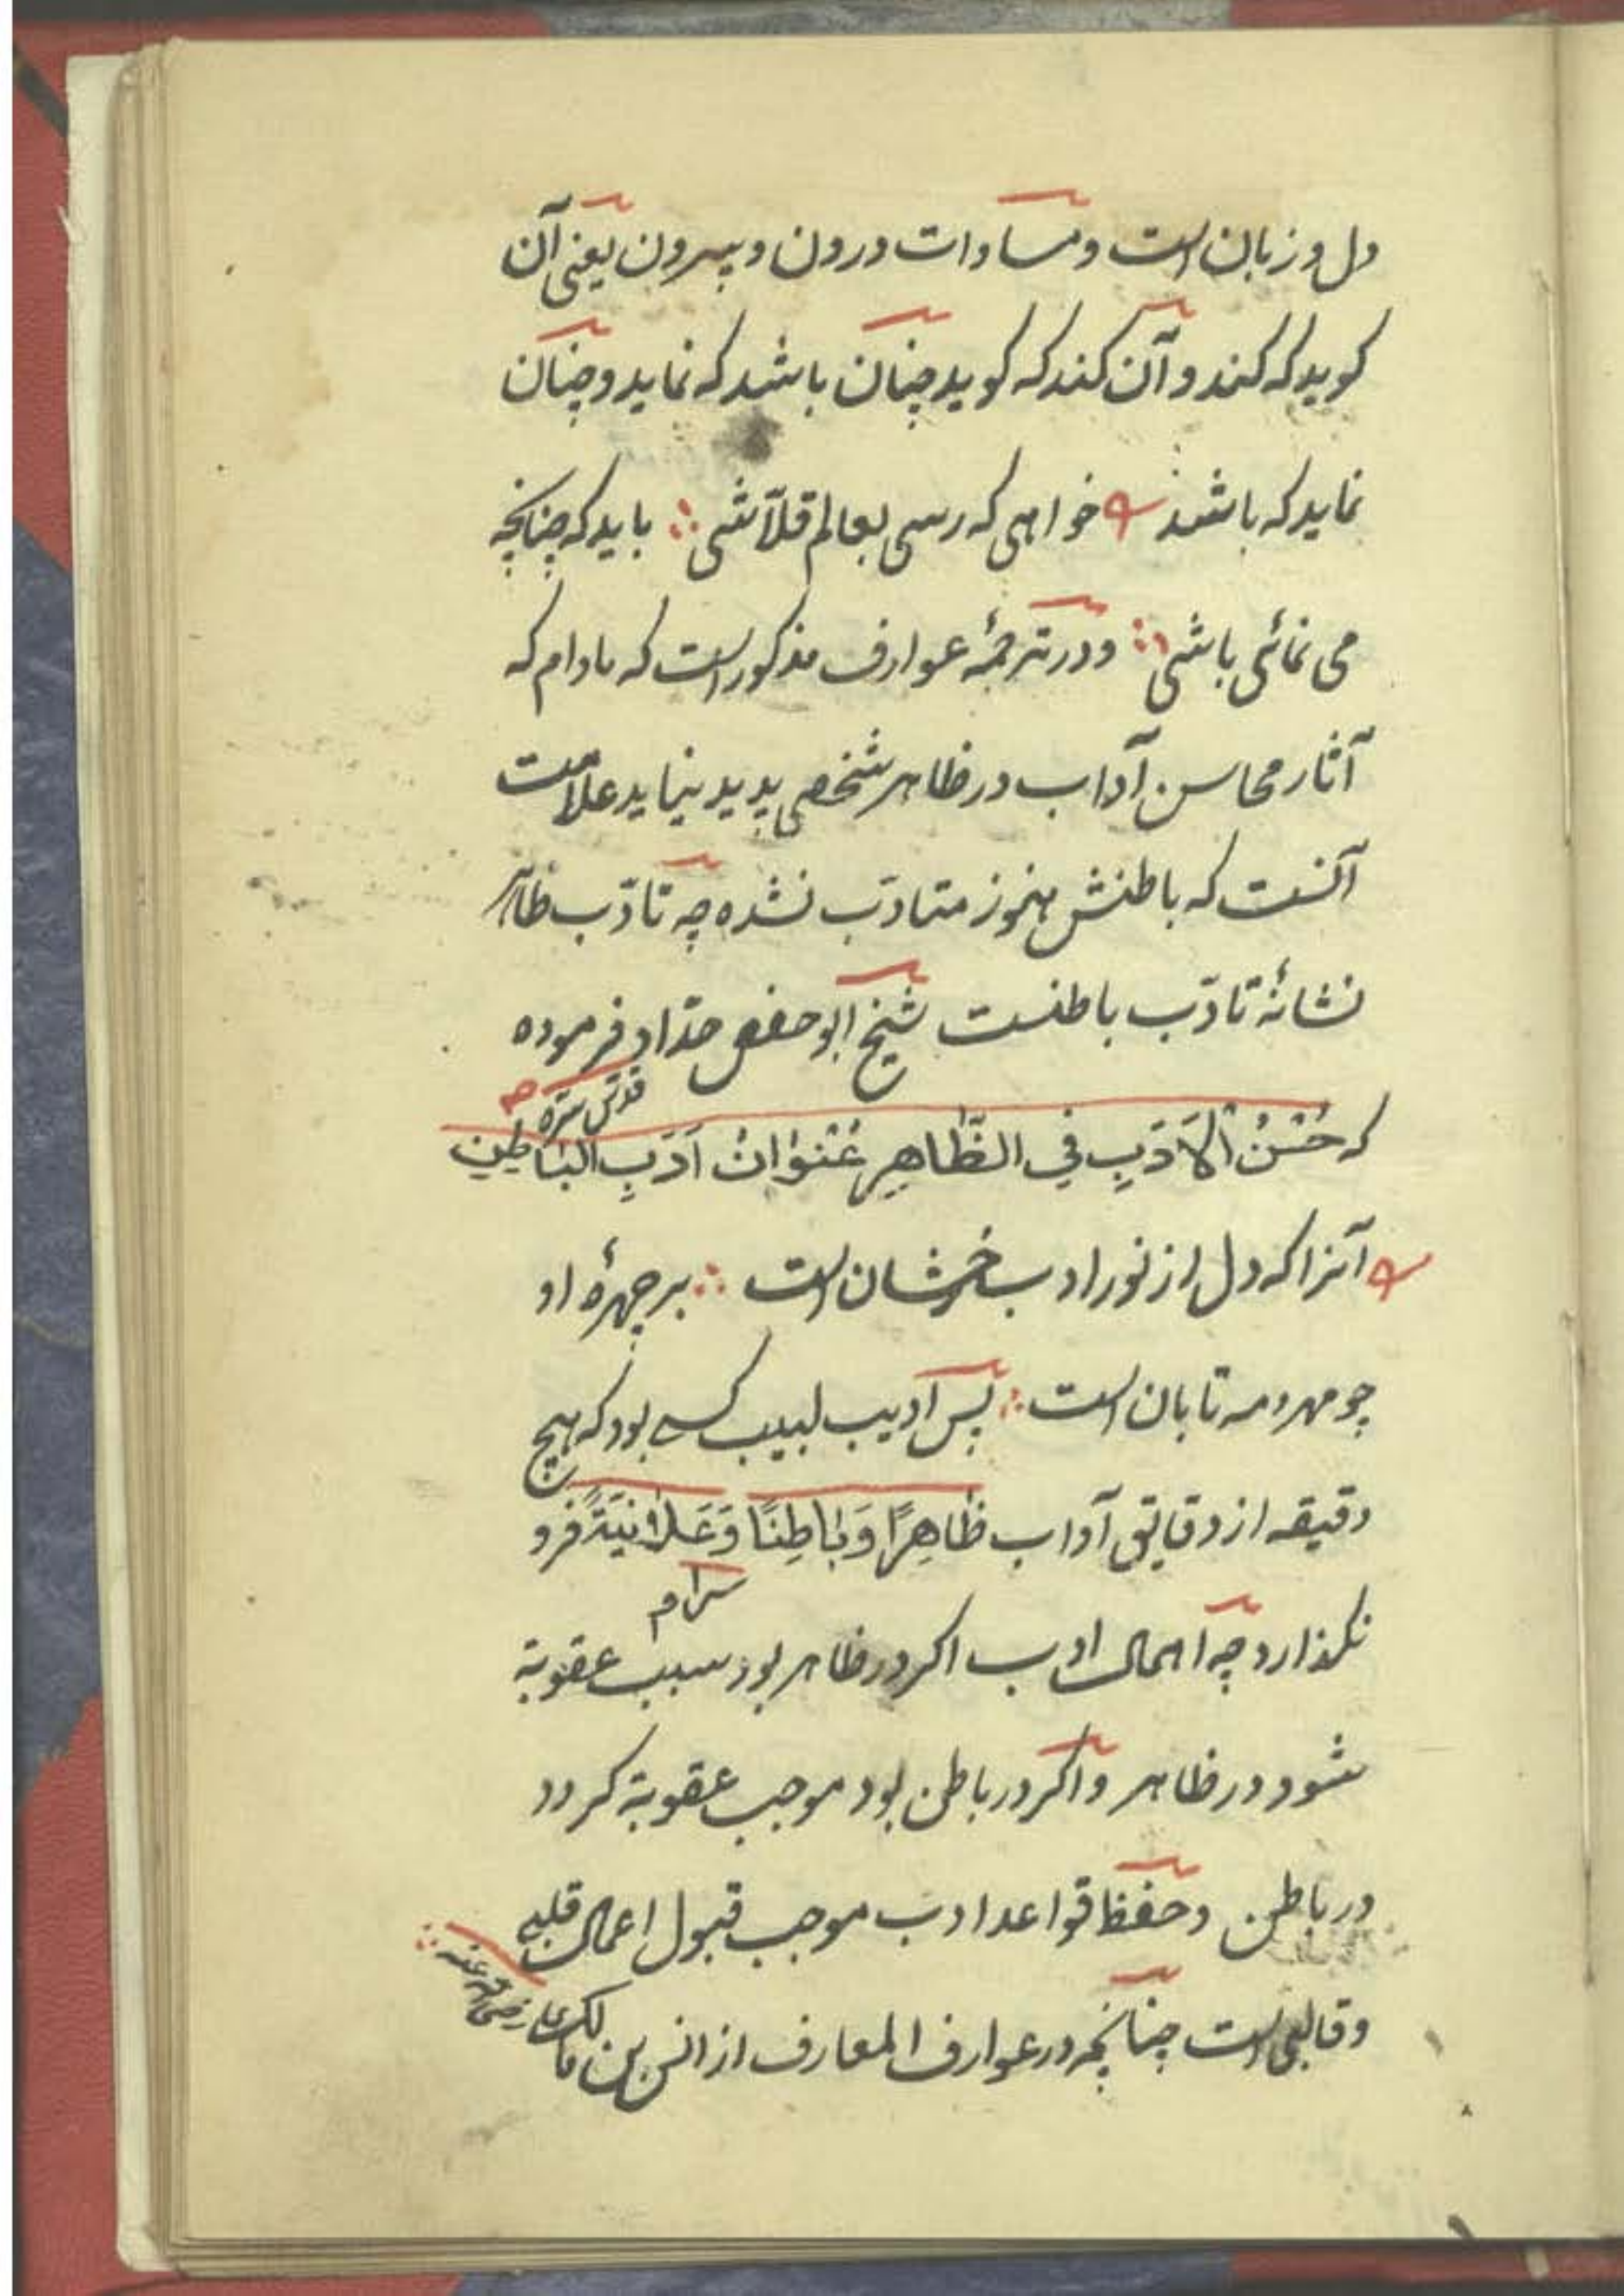 دل و زبان است و مساوات درون و بیرون یعنی آن
کوید که کند و آن کند که کوید چنان باشد که نماید و چنان
نماید که باشد خواهی که رسی بعالم قلّاشی ∴ باید که چنانچه
می نمائی باشی ∴ و در ترجمهٔ عوارف مذکور است که مادام که
آثار محاسن آداب در ظاهر شخصی پدید نیاید علامت
آنست که باطنش هنوز متادّب نشده چه تادّب ظاهر
نشانهٔ تادّب باطنست شیخ ابو حفص حدّاد فرموده
قدّس سرّه
که حُسْنُ الْاَدَبِ فِي الظَّاهِرِ عُنْوَانُ اَدَبِ الْبَاطِنِ
آنرا که دل از نور ادب رخشان است ∴ بر چهرهٔ او
چو مهر و مه تابان است ∴ پس ادیب لبیب کسی بود که هیچ
دقیقه از دقایق آداب ظَاهِرًا وَبَاطِنًا وَعَلَانِيَةً فرو
سرًا م
نکذارد چه اهمال ادب اکر در ظاهر بود سبب عقوبة
شود در ظاهر و اکر در باطن بود موجب عقوبة کردد
در باطن و حفظ قواعد ادب موجب قبول اعمال قلبی
و قالبی است چنانچه در عوارف المعارف از انس بن مالک
رضی الله عنه